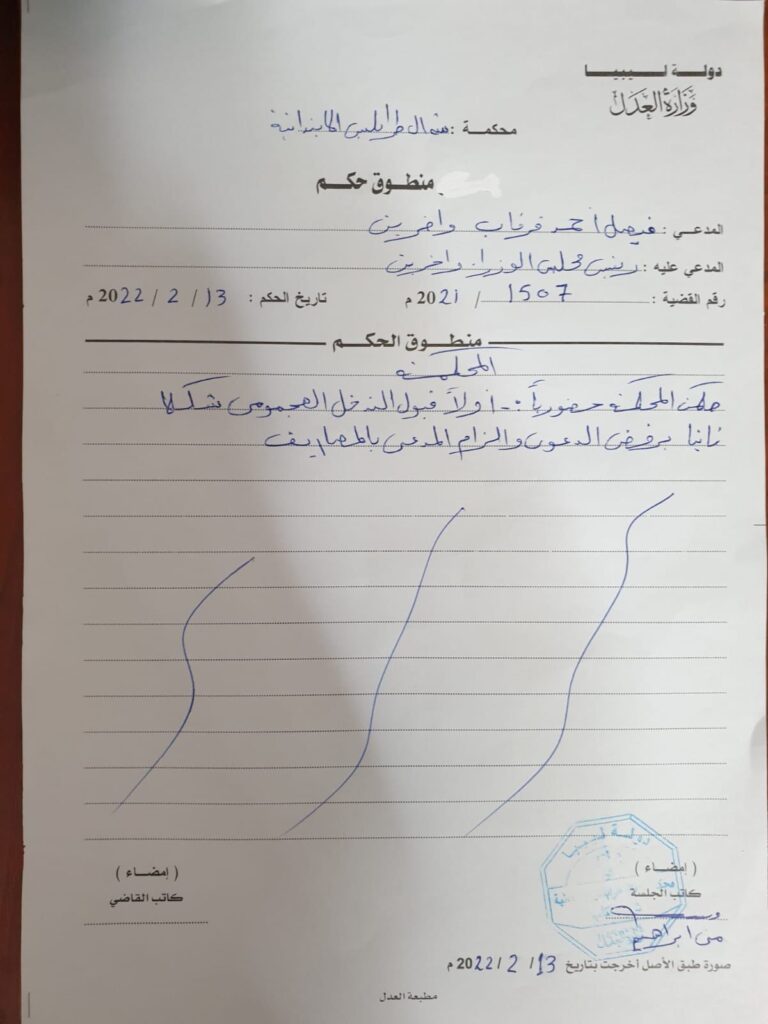 دولة ليبيا
وزارة العدل
محكمة : شمال طرابلس الابتدائية
منطوق حكم
المدعي : فيصل أحمد قرقاب واخرين
المدعي عليه : رئيس مجلس الوزراء واخرين
رقم القضية : 1507 / 2021 م تاريخ الحكم : 13 / 2 / 2022 م
منطوق الحكم
المحكمة
حكمت المحكمة حضورياً :- اولاً قبول التدخل الهجومي شكلا
ثانيا برفض الدعوى والزام المدعي بالمصاريف
( إمضاء ) ( إمضاء )
كاتب الجلسة كاتب القاضي
دولة ليبيا
صورة طبق الأصل أخرجت بتاريخ 13 / 2 / 2022 م
مطبعة العدل